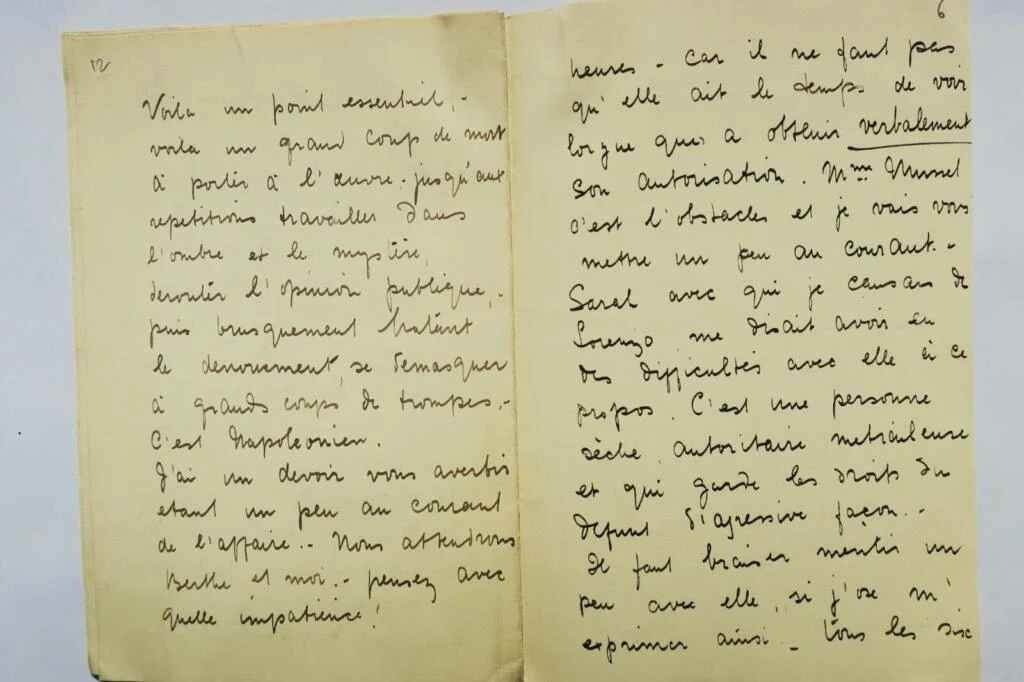 12
Voila un point essentiel, -
voila un grand coup de mort
à porter à l'œuvre. jusqu'aux
repetitions travailler dans
l'ombre et le mystère,
derouter l'opinion publique, -
puis brusquement hatant
le denouement, se demasquer
à grands coups de trompes, -
C'est Napoleonien.
J'ai un devoir vous avertir
etant un peu au courant
de l'affaire. - Nous attendrons
Berthe et moi. - pensez avec
quelle impatience!
6
heures - car il ne faut pas
qu'elle ait le temps de voir
a obtenir verbalement
son autorisation. Mme Musset
c'est l'obstacles et je vais vous
mettre un peu au courant. -
avec qui je causais de
Lorenzo me disait avoir eu
des difficultés avec elle à ce
propos. C'est une personne
sèche autoritaire meticuleuse
et qui garde les droits du
defunt d'agressive façon. -
Il faut biaiser mentir un
peu avec elle, si j'ose m'
exprimer ainsi - tous les